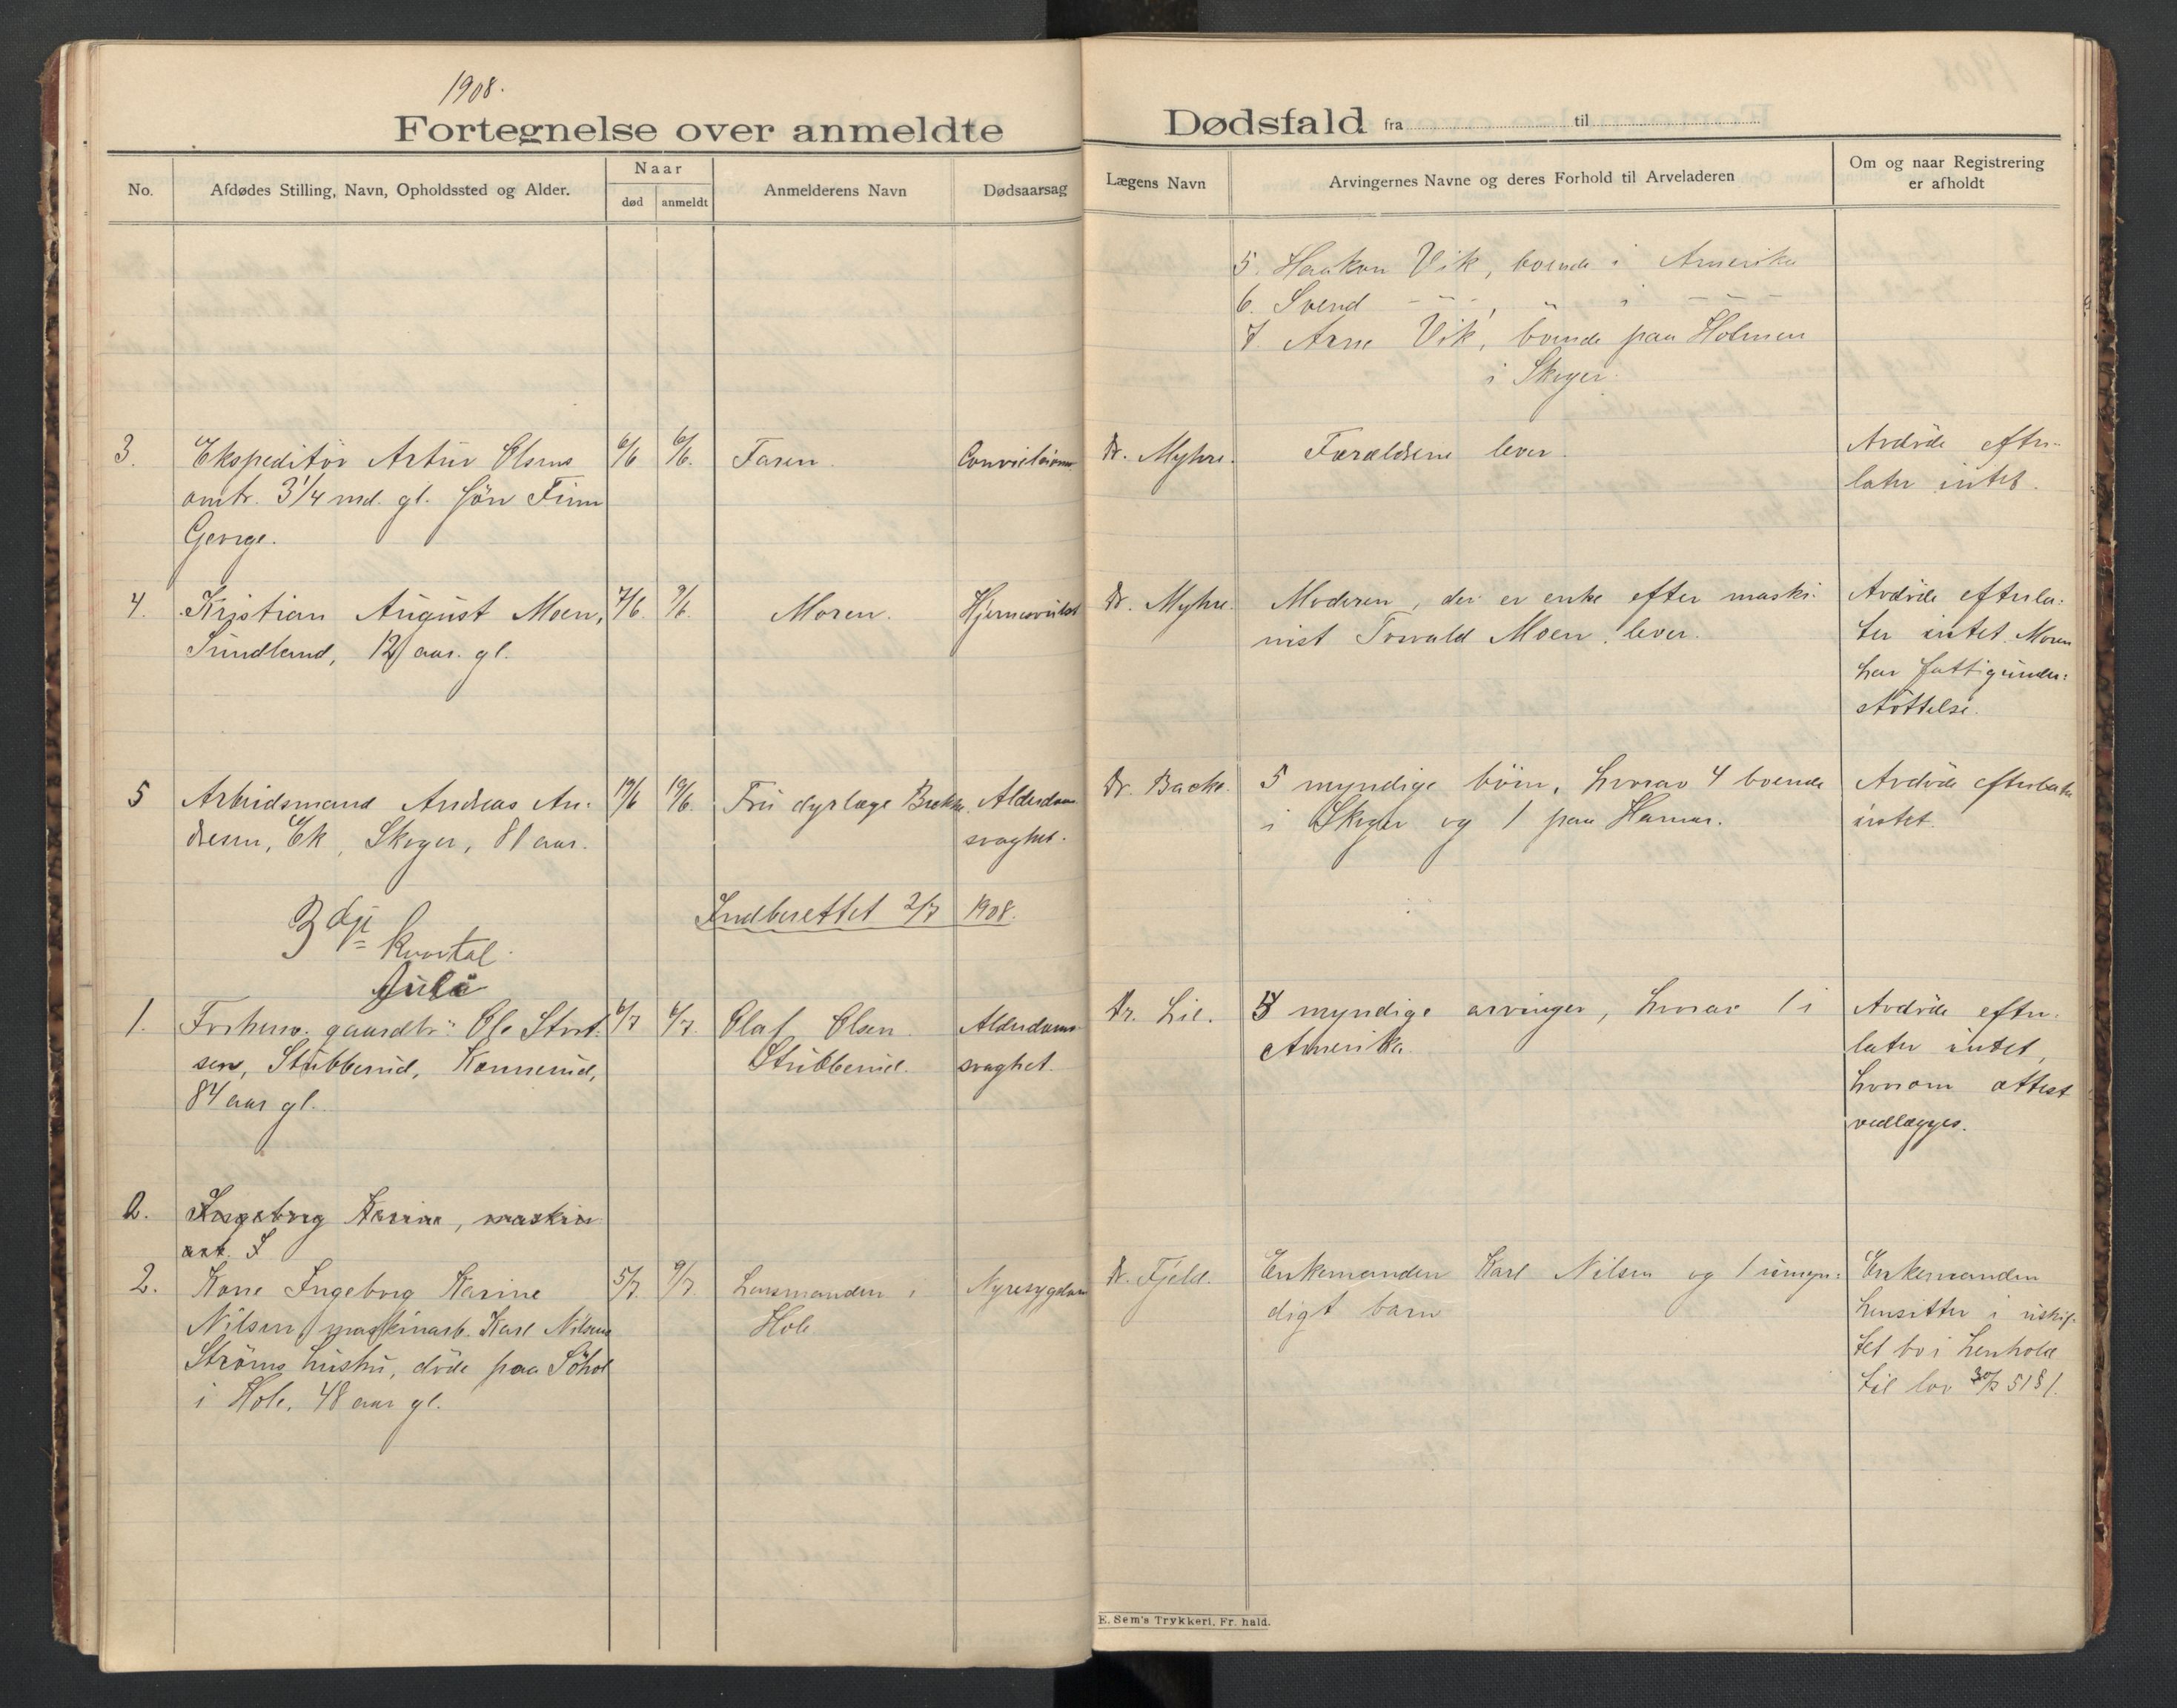 1908.
Fortegnelse over anmeldte Dødsfald fra til
No.
Afdødes Stilling, Navn, Opholdssted og Alder.
Naar
død
anmeldt
Anmelderens Navn
Dødsaarsag
Lægens Navn
Arvingernes Navne og deres Forhold til Arveladeren
Om og naar Registrering
er afholdt
5. Haakon Vik, boende i Amerika
6. Svend - - -, " i - - -
7. Arne Vik, boende paa Holmen
i Skoger.
3.
Ekspeditør Artur Olsens
omtr. 3 1/4 md. gl. søn Finn
George.
6/6
6/6.
Faren.
Dr. Myhre.
Forældrene lever.
Avdøde efter-
later intet.
4.
Kristian August Moen,
Sundland, 12 aar. gl.
7/6.
9/6.
Moren.
Hjernesvulst
Dr. Myhre.
Moderen, der er enke efter maski-
nist Torvald Moen, lever.
Avdøde efterla-
ter intet. Moren
har fattigunder-
støttelse.
5
Arbeidsmand Andreas An-
dresen, Ek, Skoger, 81 aar.
19/6.
Fru dyrlæge Brekke.
Alderdoms-
svaghet.
Dr. Backe.
5 myndige børn, hvorav 4 boende
i Skoger og 1 paa Hamar.
Avdøde efterlater
intet.
Indberettet 2/7 1908.
3dje kvartal.
Juli
1.
Forhenv. gaardbr. Ole Sivert-
sen, Stubberud, Konnerud,
84 aar gl.
6/7
6/7.
Olaf Olsen
Stubberud.
Alderdoms-
svaghet.
Dr. Lie.
myndige arvinger, hvorav 1 i
Amerika.
Avdøde efter-
later intet,
hvorom attest
vedlægges.
2.
Ingeborg Karine, maskin
arb. I
2.
Kone Ingeborg Karine
Nilsen, maskinarb. Karl Nilsens
Strøms hustru, døde paa Søhol
i Hole, 48 aar gl.
5/7
9/7
Lensmanden i
Hole
Nyresygdom
Dr. Fjeld.
Enkemanden Karl Nilsen og 1 umyn-
digt barn
Enkemanden
hensitter i uskif-
tet bo i henhold
til lov 30/7 51 § 1.
E. Sem's Trykkeri, Fr. hald.